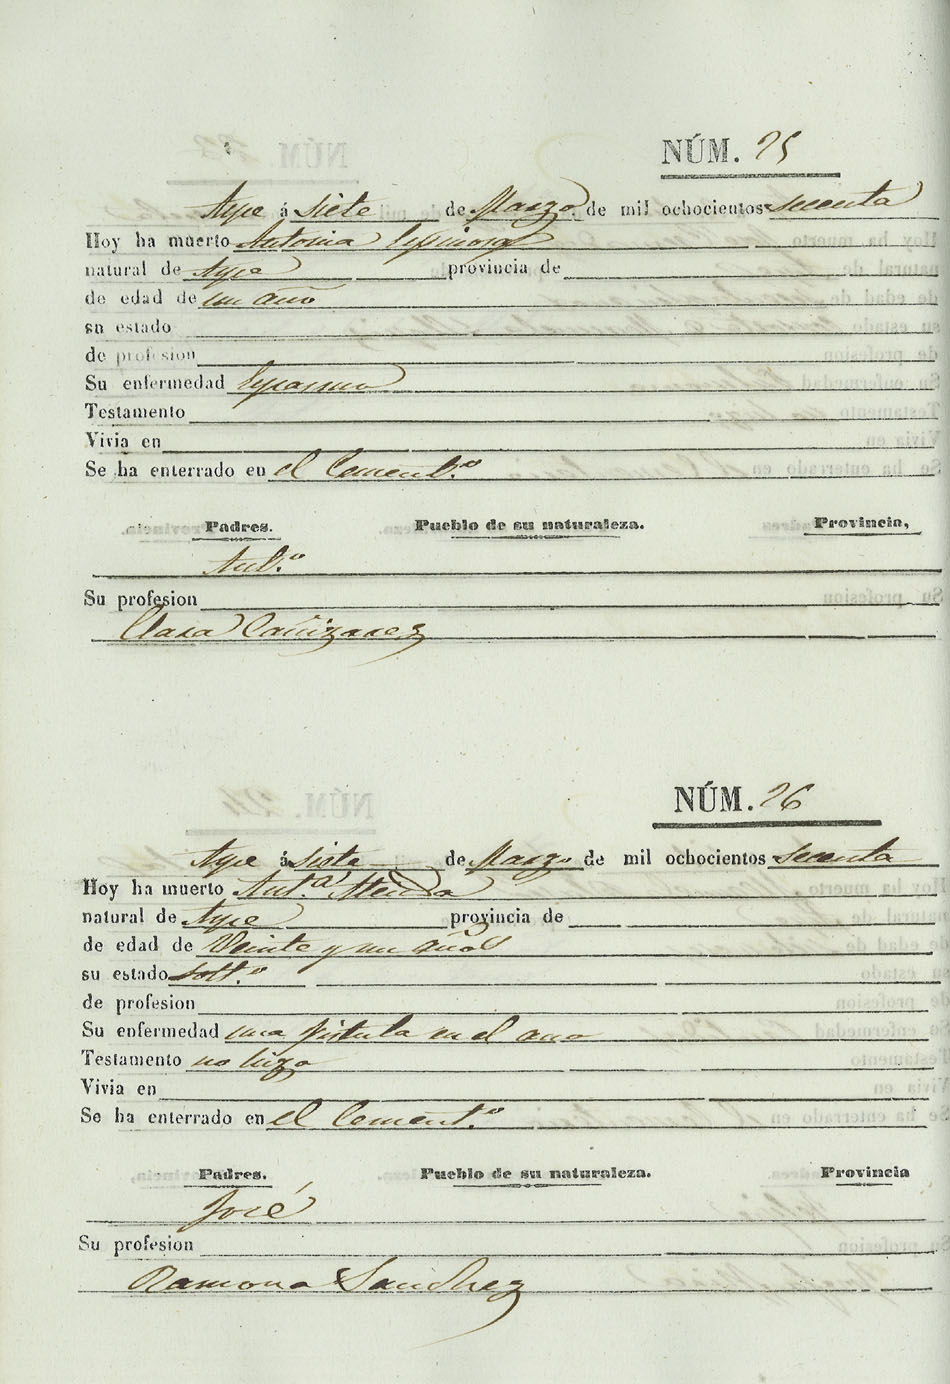 NÚM. 25
Aspe á siete de Marzo de mil ochocientos secenta
Hoy ha muerto Antonia Espinosa
natural de Aspe provincia de
de edad de un año
su estado
de profesion
Su enfermedad Espasmo
Testamento
Vivia en
Se ha enterrado en el Cement.º
Padres. Pueblo de su naturaleza. Provincia,
Ant.º
Su profesion
Clara Cañizares
NÚM. 26
Aspe á siete de Marzo de mil ochocientos secenta
Hoy ha muerto Ant.ª
natural de Aspe provincia de
de edad de Veinte y un años
su estado solt.º
de profesion
Su enfermedad una fistula en el ano
Testamento no hizo
Vivia en
Se ha enterrado en el Cement.º
Padres. Pueblo de su naturaleza. Provincia
José
Su profesion
Ramona Sanchez